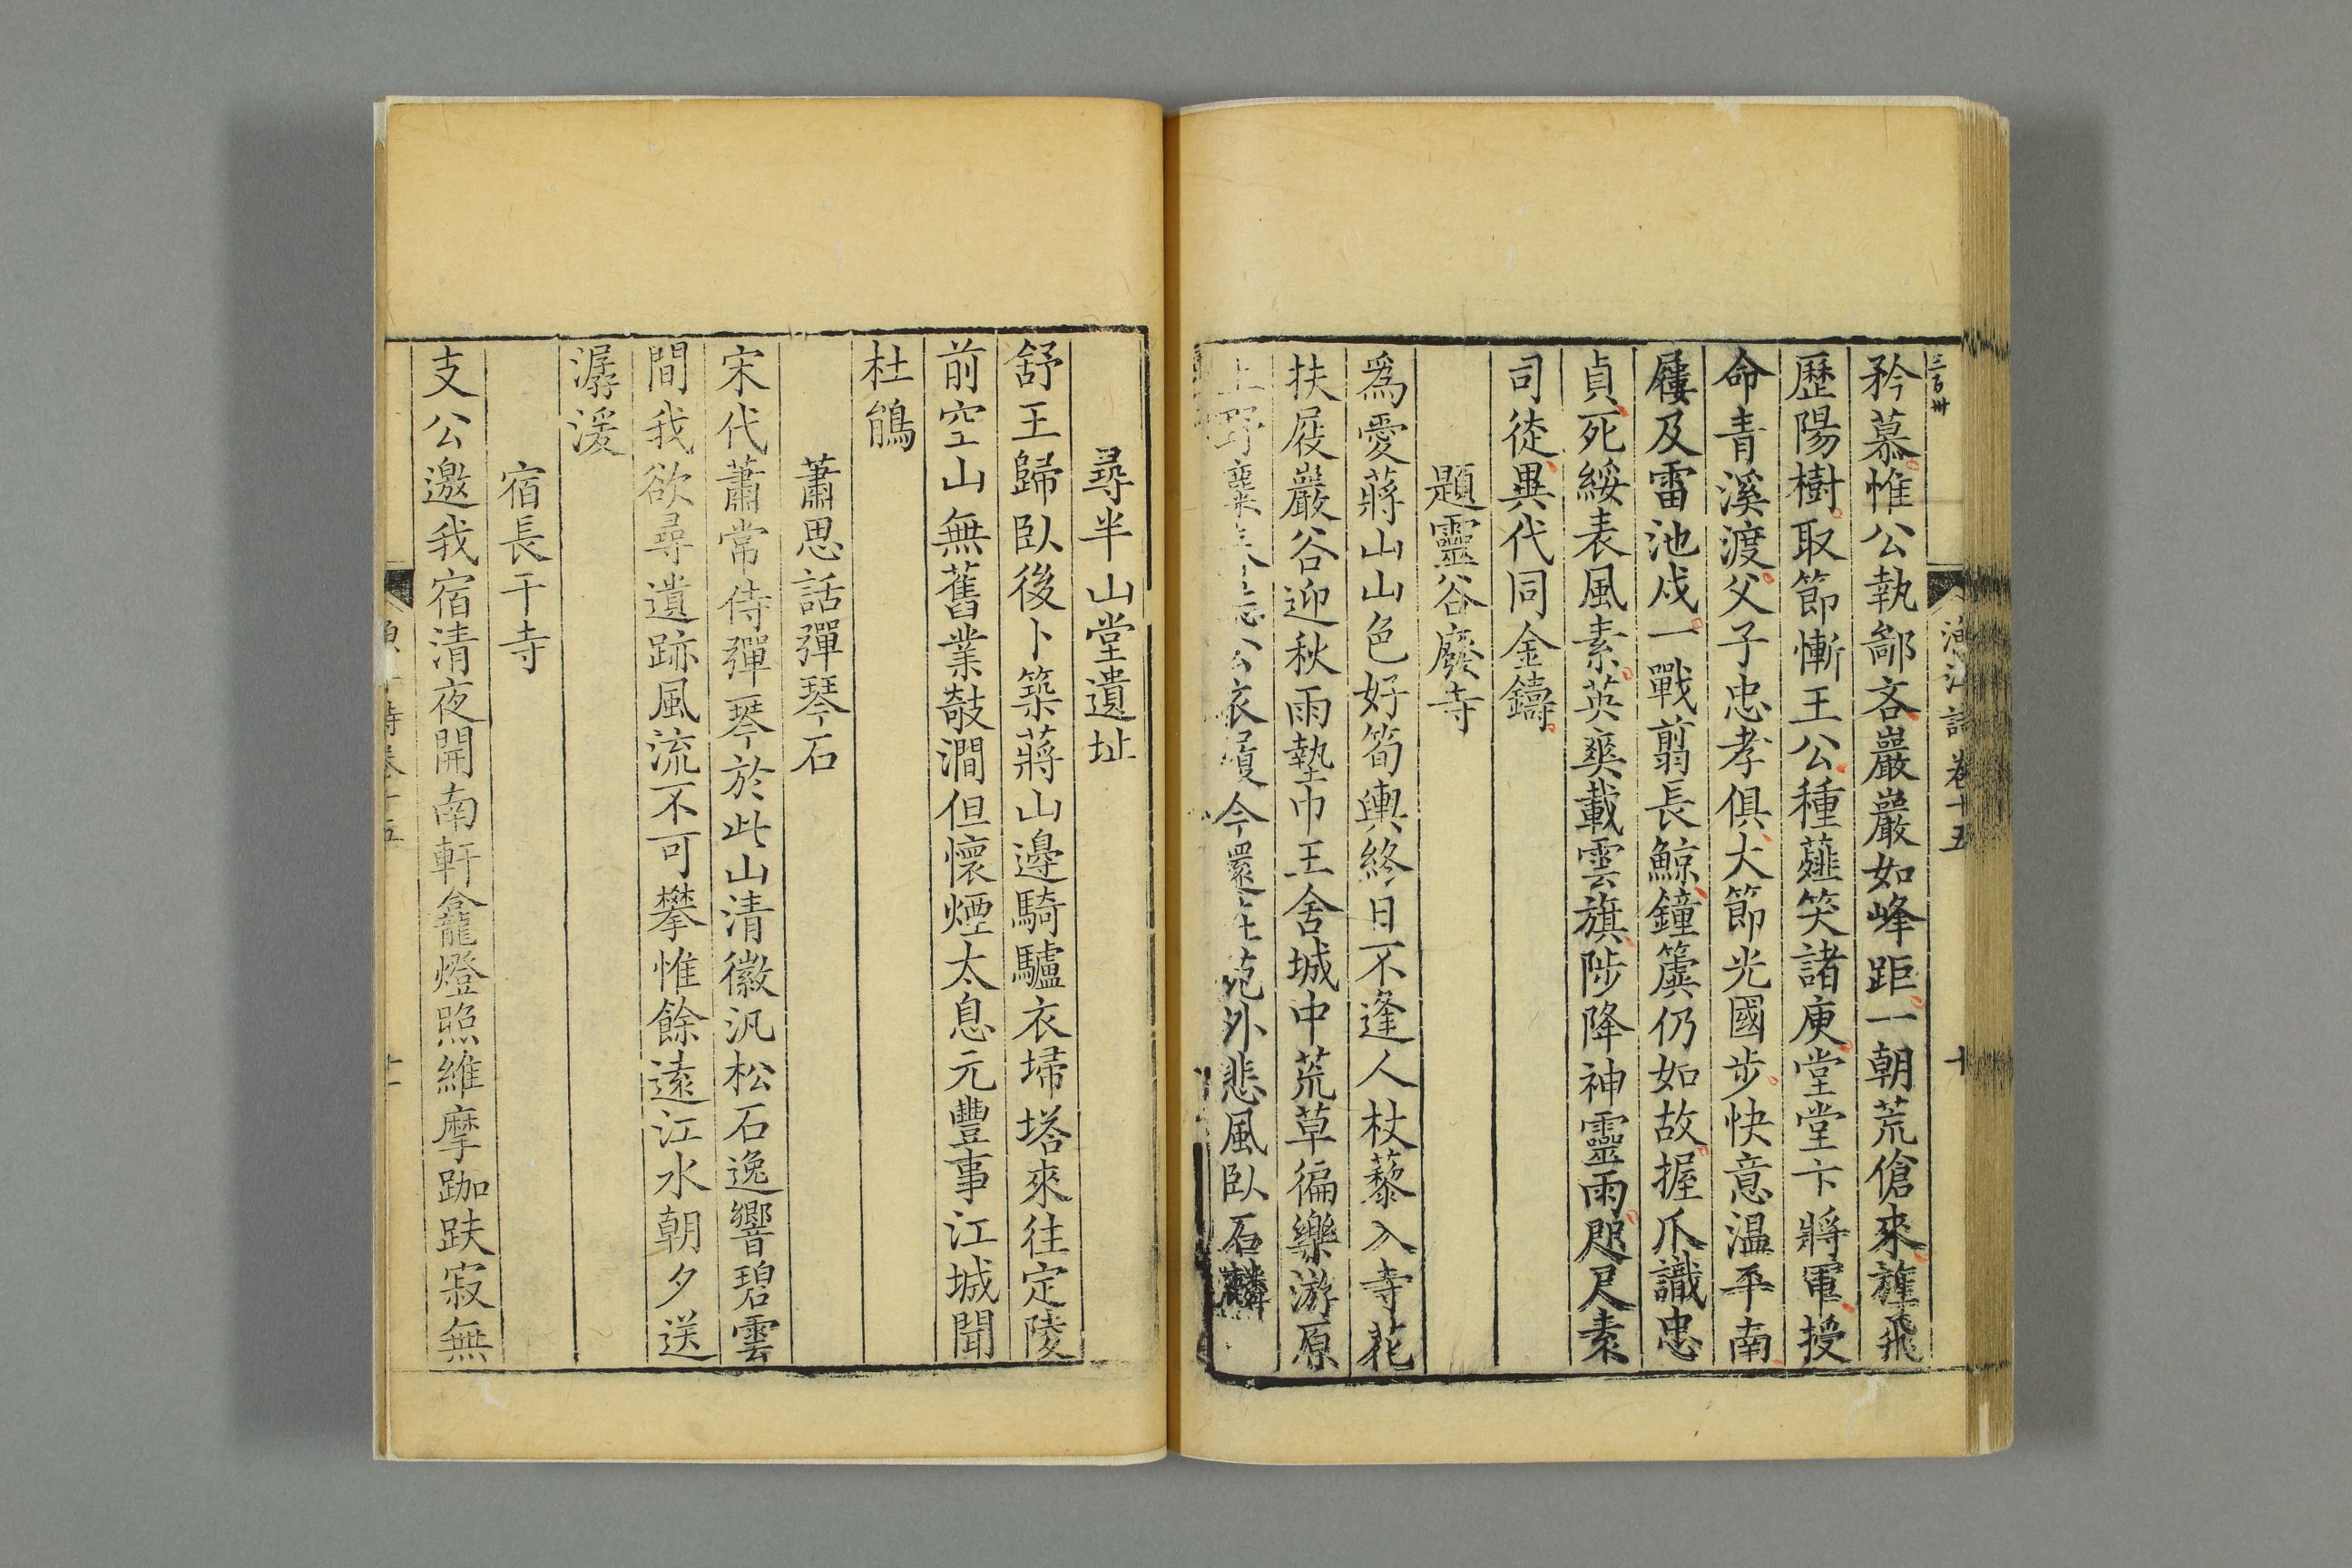 三百卅
漁洋詩卷十五 十
矜慕惟公執鄙吝巖巖如峰距一朝荒傖來旌飛
歷陽樹取節慚王公種薤笑諸庾堂堂卞將軍授
命青溪渡父子忠孝俱大節光國步快意温平南
屨及雷池戍一戰翦長鯨鐘簴仍如故握爪識忠
貞死綏表風素英爽載雲旗陟降神靈雨咫尺素
司徒異代同金鑄
題靈谷廢寺
爲愛蔣山山色好筍輿終日不逢人杖藜入寺花
扶屐巖谷迎秋雨墊巾王舍城中荒草徧樂游原
上野糞 志公衣履今還在苑外悲風臥石麟
尋半山堂遺址
舒王歸臥後卜築蔣山邊騎驢衣埽塔來往定陵
前空山無舊業攲澗但懷煙太息元豐事江城聞
杜鵑
蕭思話彈琴石
宋代蕭常侍彈琴於此山清徽汎松石逸響碧雲
間我欲尋遺跡風流不可攀惟餘遠江水朝夕送
潺湲
宿長干寺
支公邀我宿清夜開南軒龕燈照維摩跏趺寂無
詩卷十五 十一